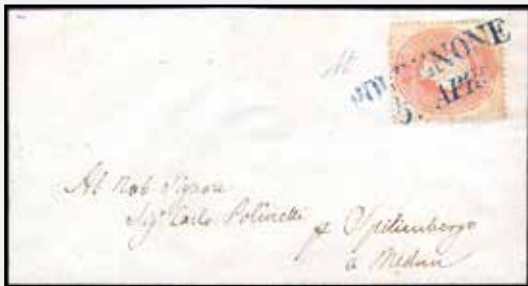 PORDENONE
5. APR.
Al Nob Signore
Sigr Carlo Polinetti
p Spilimbergo
a Medun